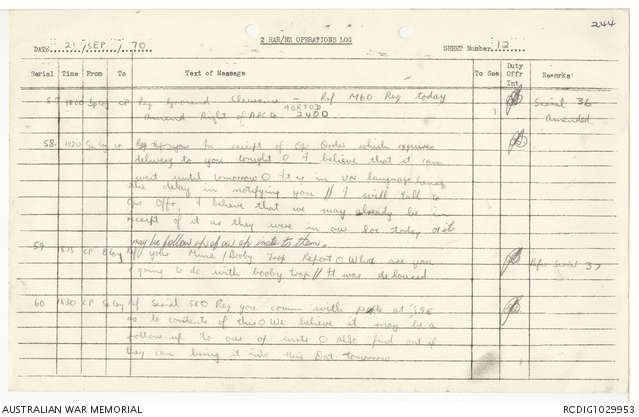 244
2 RAR/NZ OPERATIONS LOG
DATE 21 / SEP / 70 SHEET Number 12
Serial Time From To Text of Message To See Duty Offr Int. Remarks:
57 1800 CP Req Ground Clearance - Ref M60 Req today Serial 36
AORTOD
Amend Right of 2400 Amended
58 1820 In receipt of Op Order which requires
delivery to you tonight O I believe that it can
wait until tomorrow O It is in VN language hence
the delay in notifying you // I will talk to
Ops Offr. I believe that we may already be in
receipt of it as they were in our loc today or it
may be follow up of our op instr to them.
59 CP Ref your Mine/Booby Trap Report O What are you Refer Serial 37
going to do with booby trap // It was deloused
60 1830 CP Ref Serial 58 O Req you comm with
as to contents of this O We believe it may be a
follow-up to our op instr O Also find out if
they can bring it into this Dat tomorrow.
AUSTRALIAN WAR MEMORIAL RCDIG1029953